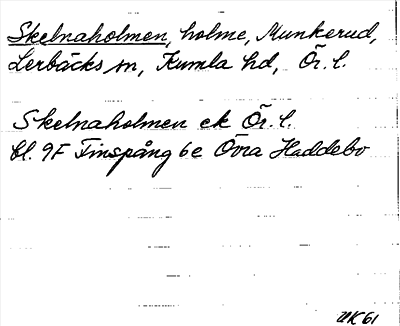 Skelnaholmen, holme, Munkerud,
Lerbäcks sn, Kumla hd, Ör. l.
Skelnaholmen ek Ör. l.
bl. 9F Finspång 6e Övra Haddebo
UK61